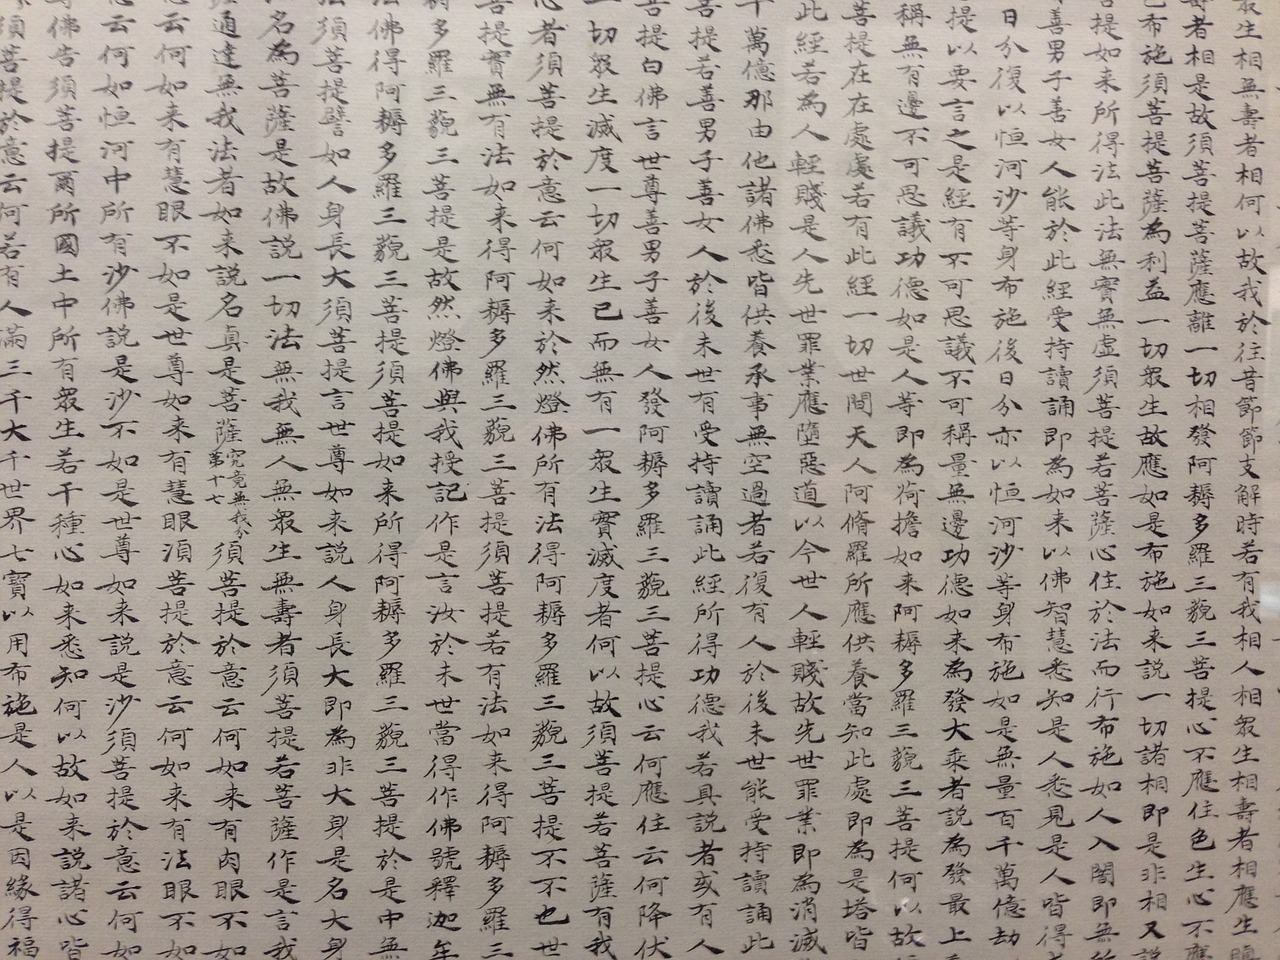 眾生相無壽者相何以故我於往昔節節支解時若有我相人相眾生相壽者相應生瞋
壽者相是故須菩提菩薩應離一切相發阿耨多羅三藐三菩提心不應住色生心不應
色布施須菩提菩薩為利益一切眾生故應如是布施如来說一切諸相即是非相又說
菩提如来所得法此法無實無虛須菩提若菩薩心住於法而行布施如人入闇即無所
善男子善女人能於此經受持讀誦即為如来以佛智慧悉知是人悉見是人皆得
日分復以恒河沙等身布施後日分亦以恒河沙等身布施如是無量百千萬億劫
提以要言之是經有不可思議不可稱量無邊功德如来為發大乘者說為發最上
稱無有邊不可思議功德如是人等即為荷擔如来阿耨多羅三藐三菩提何以故
菩提在在處處若有此經一切世間天人阿脩羅所應供養當知此處即為是塔皆
此經若為人輕賤是人先世罪業應墮惡道以今世人輕賤故先世罪業即為消滅
千萬億那由他諸佛悉皆供養承事無空過者若復有人於後末世能受持讀誦此
菩提若善男子善女人於後末世有受持讀誦此經所得功德我若具說者或有人
菩提白佛言世尊善男子善女人發阿耨多羅三藐三菩提心云何應住云何降伏
一切眾生滅度一切眾生已而無有一眾生實滅度者何以故須菩提若菩薩有我
心者須菩提於意云何如来於然燈佛所有法得阿耨多羅三藐三菩提不不也世
菩提實無有法如来得阿耨多羅三藐三菩提須菩提若有法如来得阿耨多羅三
耨多羅三藐三菩提是故然燈佛與我授記作是言汝於未世當得作佛號釋迦牟
佛得阿耨多羅三藐三菩提須菩提如来所得阿耨多羅三藐三菩提於是中無
法須菩提譬如人身長大須菩提言世尊如来說人身長大即為非大身是名大身
名為菩薩是故佛說一切法無我無人無眾生無壽者須菩提若菩薩作是言我
通達無我法者如来說名真是菩薩究竟無我分第十七須菩提於意云何如来有肉眼不如
意云何如来有慧眼不如是世尊如来有慧眼須菩提於意云何如来有法眼不如
意云何如恒河中所有沙佛說是沙不如是世尊如来說是沙須菩提於意云何如
佛告須菩提爾所國土中所有眾生若干種心如来悉知何以故如来說諸心皆
須菩提於意云何若有人滿三千大千世界七寶以用布施是人以是因緣得福